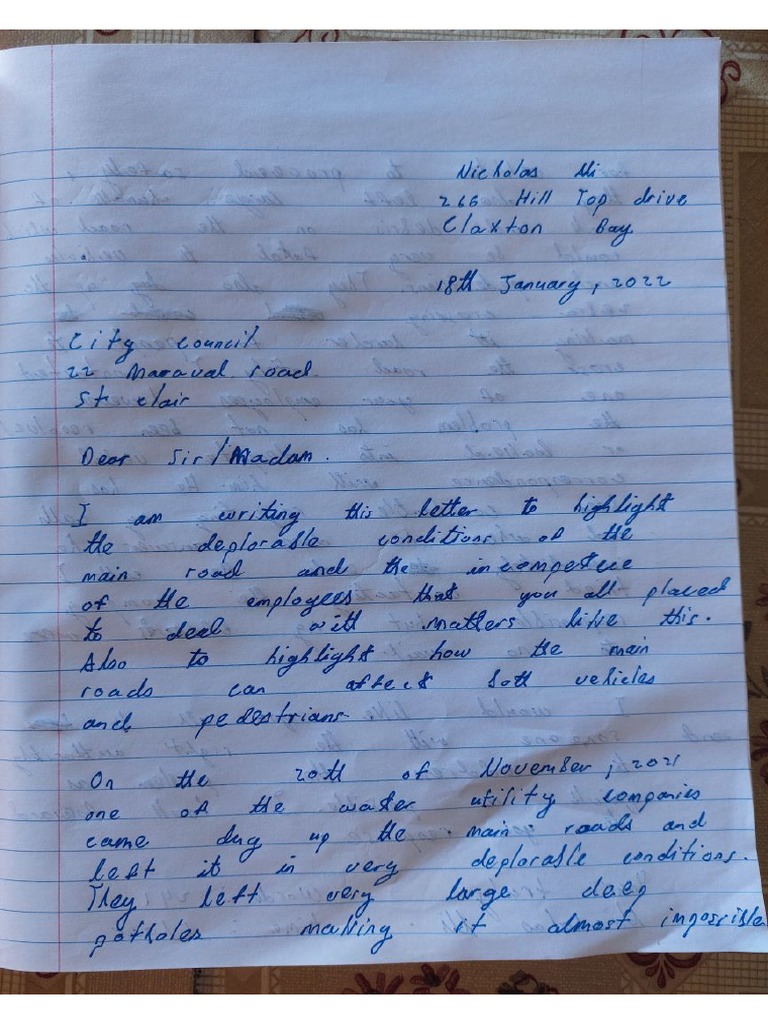 Nicholas Ali
266 Hill Top drive
Claxton Bay
18th January, 2022
City council
22 Maraval road
St clair
Dear Sir/Madam.
I am writing this letter to highlight
the deplorable conditions of the
main road and the incompetece
of the employees that you all placed
to deal with matters like this.
Also to highlight how the main
roads can affect both vehicles
and pedestrians.
On the 20th of November, 2021
one of the water utility companies
came dug up the main roads and
left it in very deplorable conditions.
They left very large deep
potholes making it almost impossible